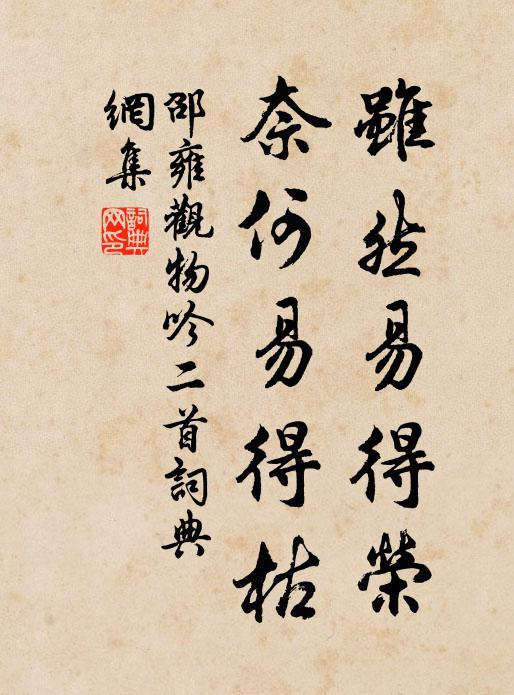 雖然易得榮
奈何易得枯
邵雍觀物吟二首詞典
網集
詞典網印